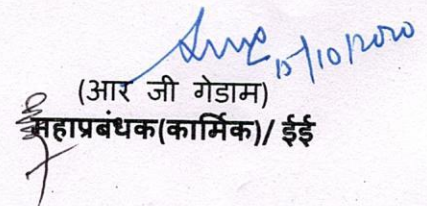 15/10/2020
(आर जी गेडाम)
महाप्रबंधक(कार्मिक)/ ईई